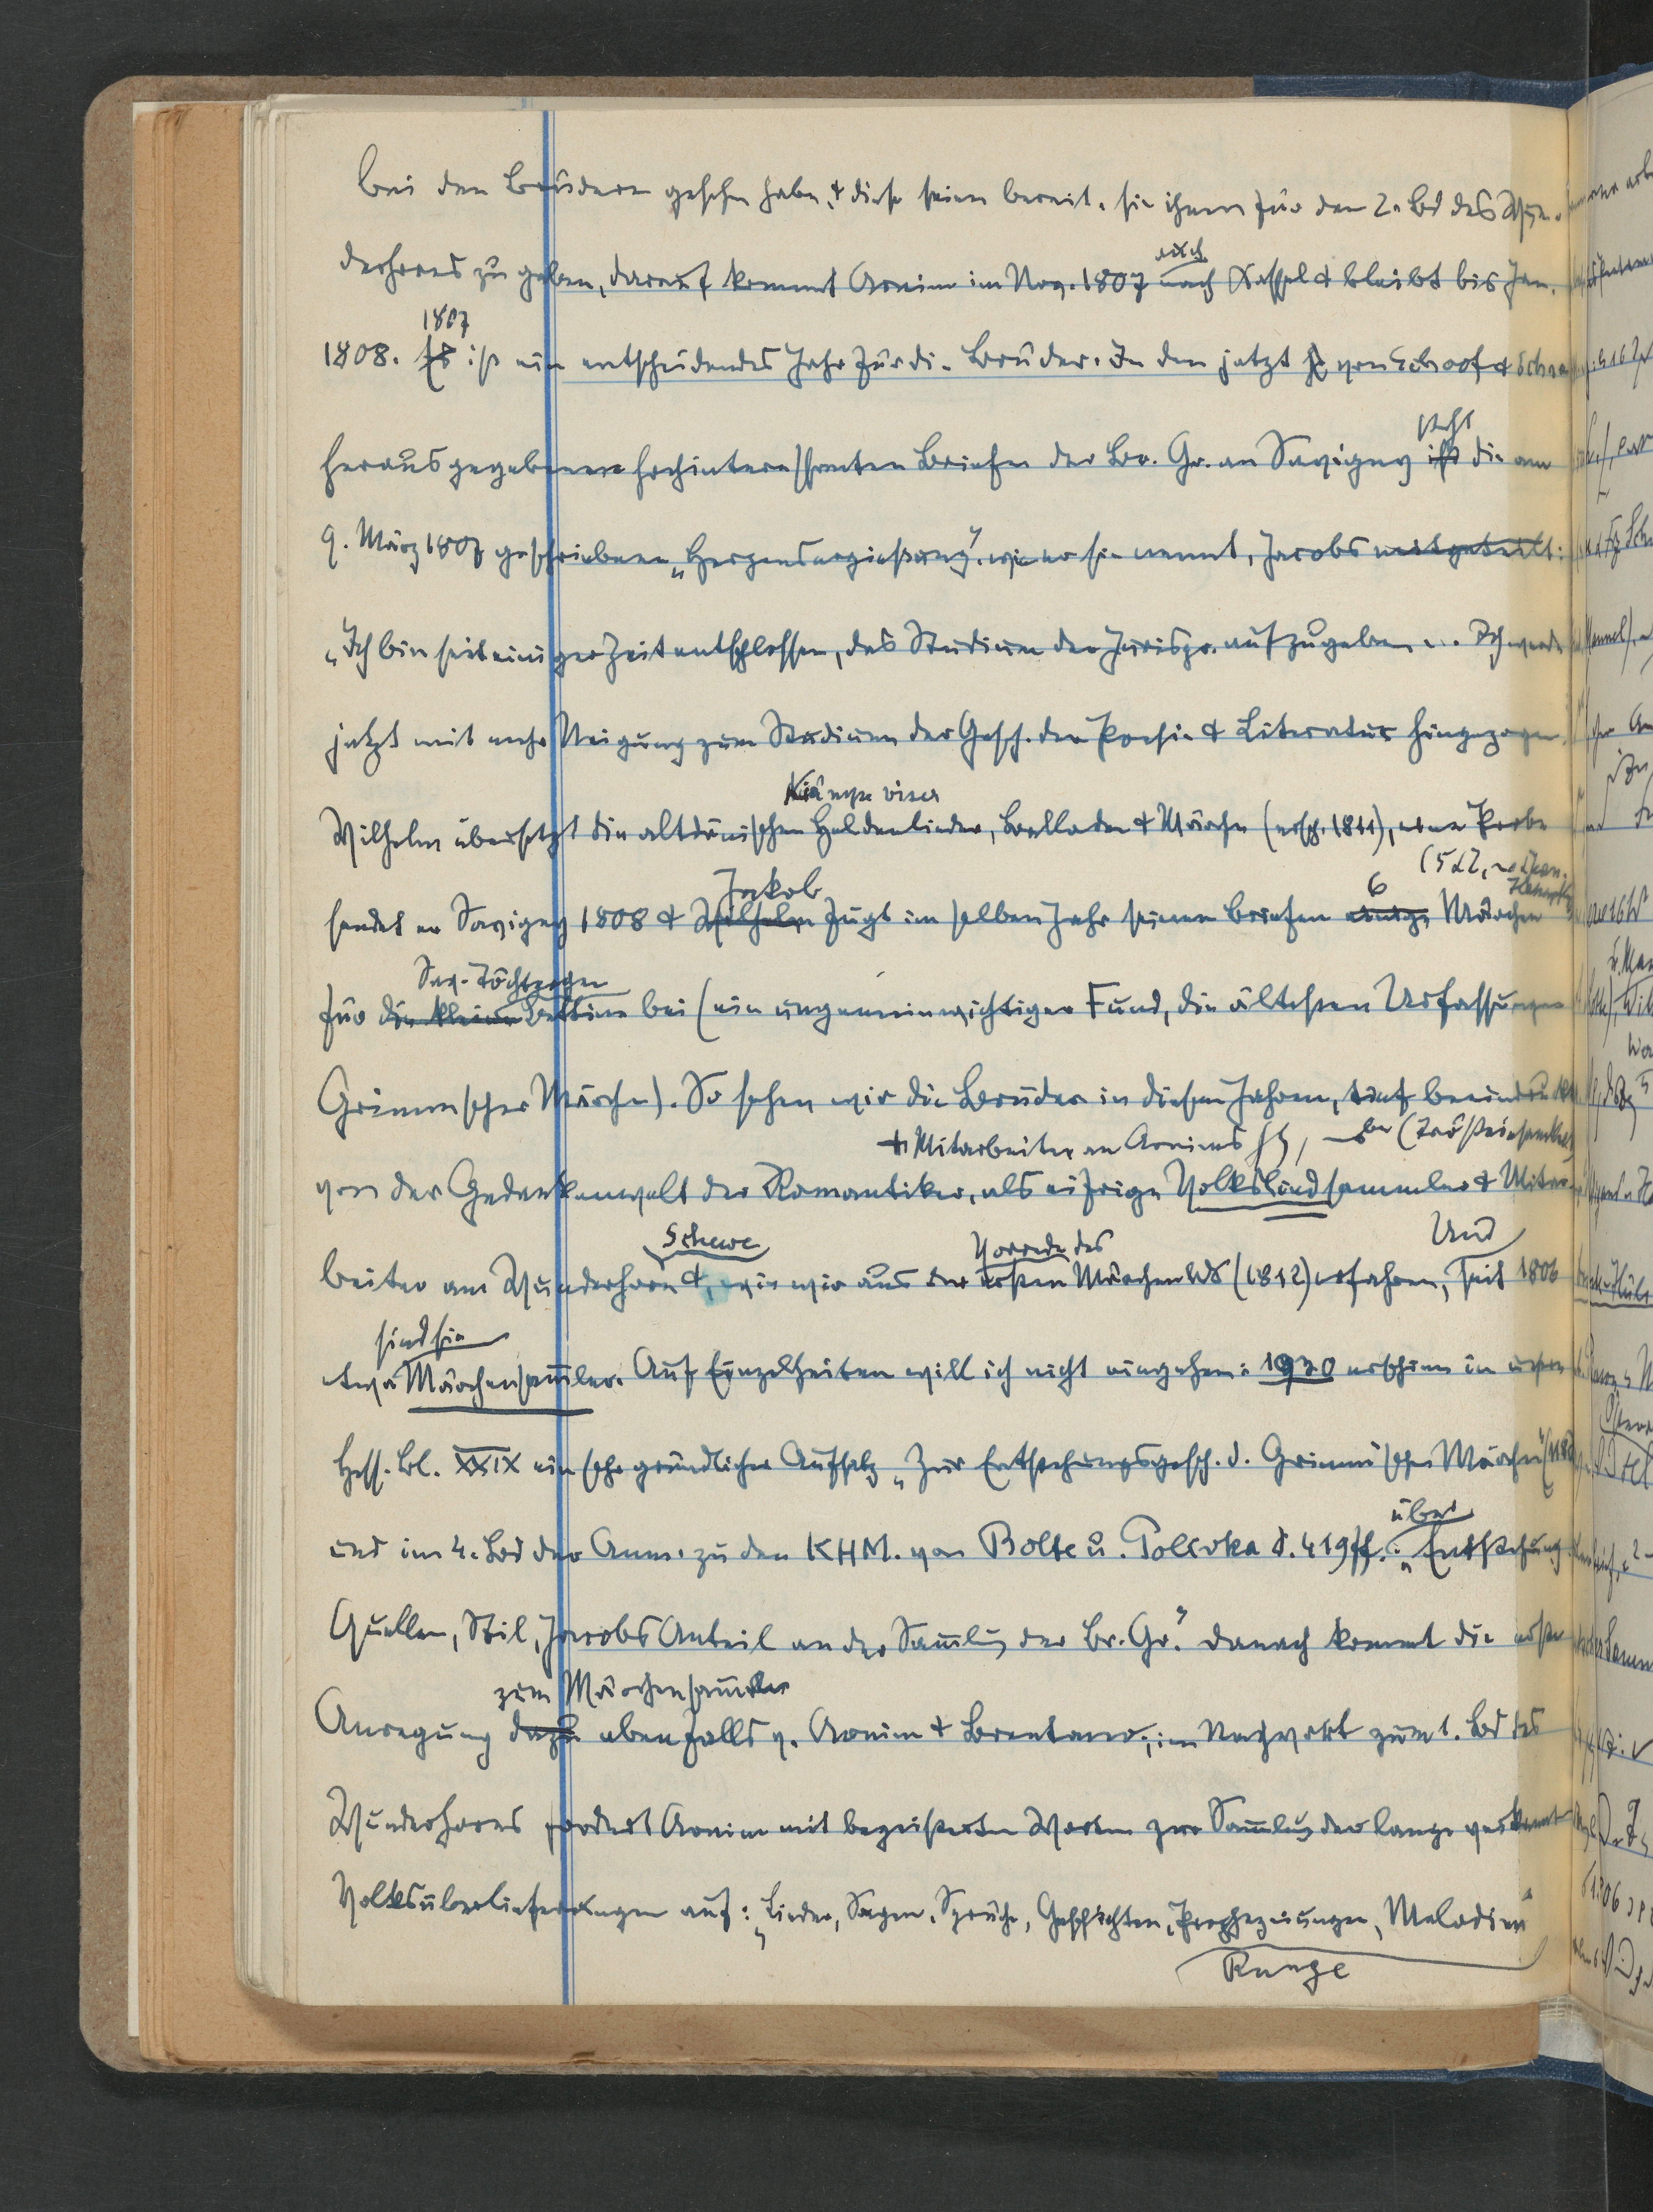 bei den Brüdern gesehn habe, & diese seien bereit, sie ihnen für den 2. Bd des Wun-
derhorns zu geben, darauf kommt Arnim im Nov. 1807 auch
nach Kassel & bleibt bis Jan.
1807
1808. Es ist ein entscheidendes Jahr für die Brüder. In den jetzt von Schoof &
herausgegebenen hochinteressanten Briefen der Br. Gr. an Savigny ist steht die am
9. März 1807 geschriebene „Herzensergießung", wie er sie nennt, Jacobs mitgeteilt:
„Ich bin seit einiger Zeit entschlossen, das Studium der Jurispr. aufzugeben ... Ich werde
jetzt mit mehr Neigung zum Studium der Gesch. der Poesie & Literatur hingezogen.
Kiämpe viser
Wilhelm übersetzt die altdänischen Heldenlieder, Balladen & Märchen (ersch. 1811), eine Probe
Jakob 6
sendet er Savigny 1808 & Wilhelm fügt im selben Jahr seinen Briefen einige Märchen
Sav. Töchterchen
für die kleine Bettine bei (ein ungemein wichtiger Fund, die ältesten Urfassungen
Grimmscher Märchen). So sehen wir die Brüder in diesen Jahren, tief beeindruckt
& Mitarbeiter an Arnims
von der Gedankenwelt der Romantiker, als eifrige Volksliedsammler & Mitar-
Schewe Vorrede des Und
beiter am Wunderhorn &, wie wir aus der ersten Märchen Bd (1812) erfahren, seit 1806
sind sie
etwa Märchensam̅ler. Auf Einzelheiten will ich nicht eingehen: 1930 erschien in unsern
Hess. Bl. XXIX ein sehr gründlicher Aufsatz „Zur Entstehungsgesch. d. Grimmischen Märchen"
über
und im 4. Bd der Anm. zu den KHM. von Bolte u. Polivka S. 419 ff.: „Entstehung
Quellen, Stil, Jacobs Anteil an der Sam̅lg der Br. Gr." danach kommt die erste
zum Märchensam̅eln
Anregung dazu ebenfalls v. Arnim & Brentano; im Nachwort zum 1. Bd des
Wunderhorns fordert Arnim mit begeisterten Worten zur Sam̅lung der lange verkannten
Volksüberlieferungen auf: „Lieder, Sagen, Sprüche, Geschichten, Prophezeiungen, Melodien"
Runge